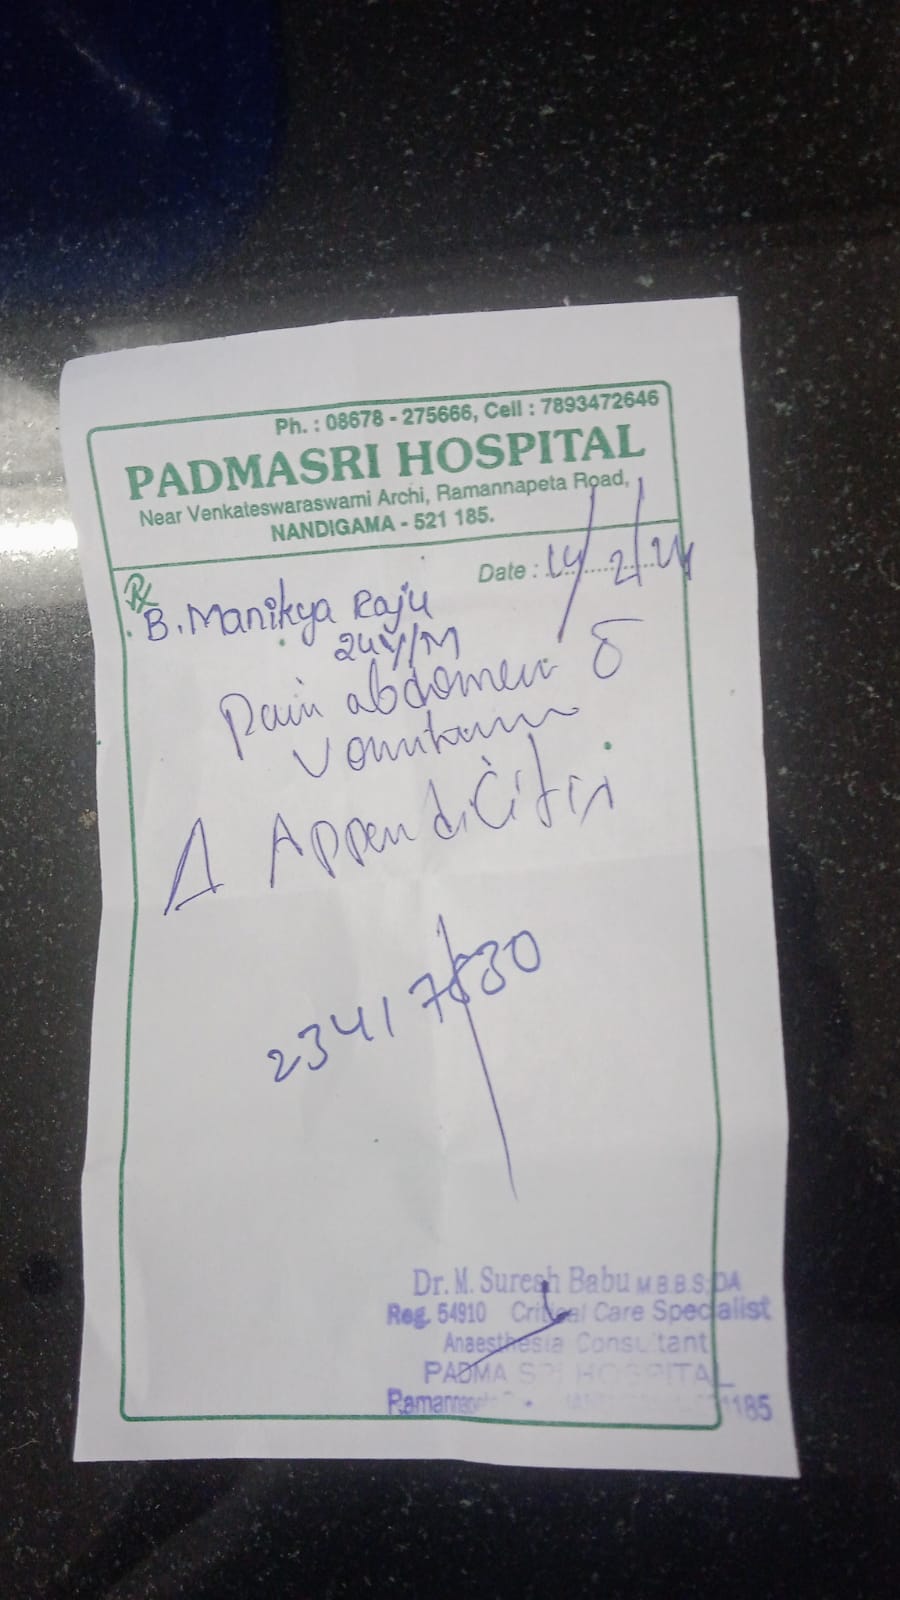 Ph. : 08678 - 275666, Cell : 7893472646
PADMASRI HOSPITAL
Near Venkateswaraswami Archi, Ramannapeta Road,
NANDIGAMA - 521 185.
Date : 14/2/24
Rx
B. Manikya Raju
24Y/M
Pain abdomen c̄
Vomitings
Δ Appendicitis
23417830
Dr. M. Suresh Babu M.B.B.S; DA
Reg. 54910 Critical Care Specialist
Anaesthesia Consultant
PADMA SRI HOSPITAL
1185